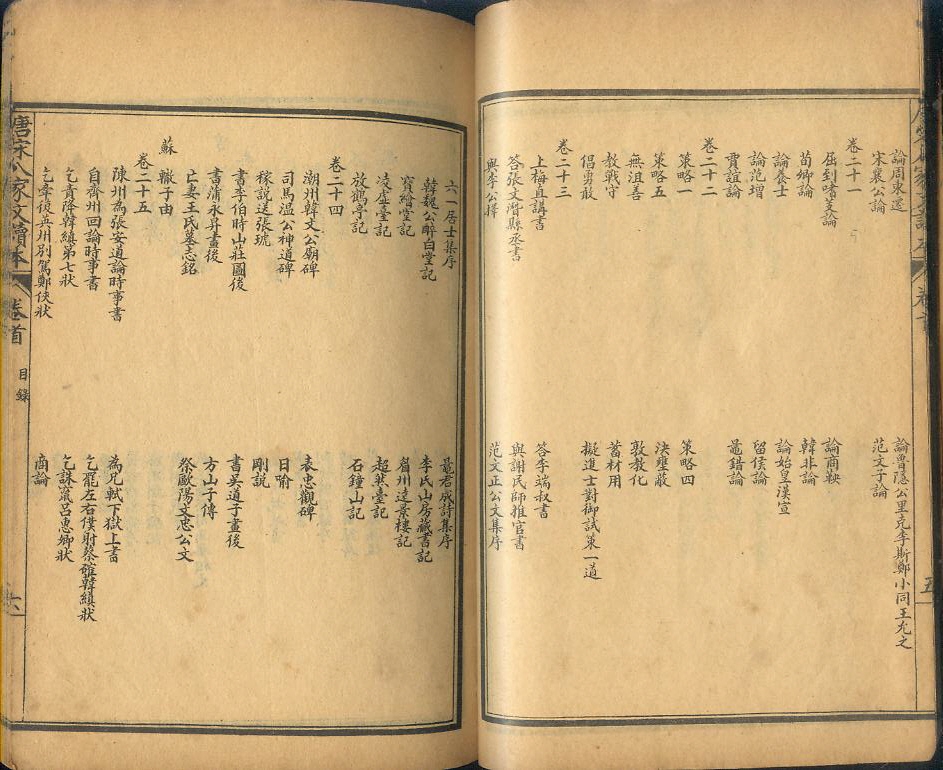 論周東遷 論魯隱公里克李斯鄭小同王允之
宋襄公論 范文子論
卷二十一
屈到嗜芰論 論商鞅
荀卿論 韓非論
論養士 論始皇漢宣
論范增 留侯論
賈誼論 鼂錯論
卷二十二
策略一 策略四
策略五 決壅蔽
無沮善 敦教化
教戰守 蓄材用
倡勇敢 擬進士對御試策一道
卷二十三
上梅直講書 答李端叔書
答張文潛縣丞書 與謝民師推官書
與李公擇 范文正公文集序
六一居士集序 鼂君成詩集序
韓魏公醉白堂記 李氏山房藏書記
寶繪堂記 眉州遠景樓記
凌虛臺記 超然臺記
放鶴亭記 石鐘山記
卷二十四
潮州韓文公廟碑 表忠觀碑
司馬溫公神道碑 日喻
稼說送張琥 剛說
書李伯時山莊圖後 書吳道子畫後
書蒲永昇畫後 方山子傳
亡妻王氏墓志銘 祭歐陽文忠公文
蘇轍子由
卷二十五
陳州為張安道論時事書 為兄軾下獄上書
自齊州回論時事書 乞罷左右僕射蔡確韓縝狀
乞責降韓縝第七狀 乞誅竄呂惠卿狀
乞牽復英州別駕鄭俠狀 商論
唐宋八家文讀本 卷首 目錄 六
五